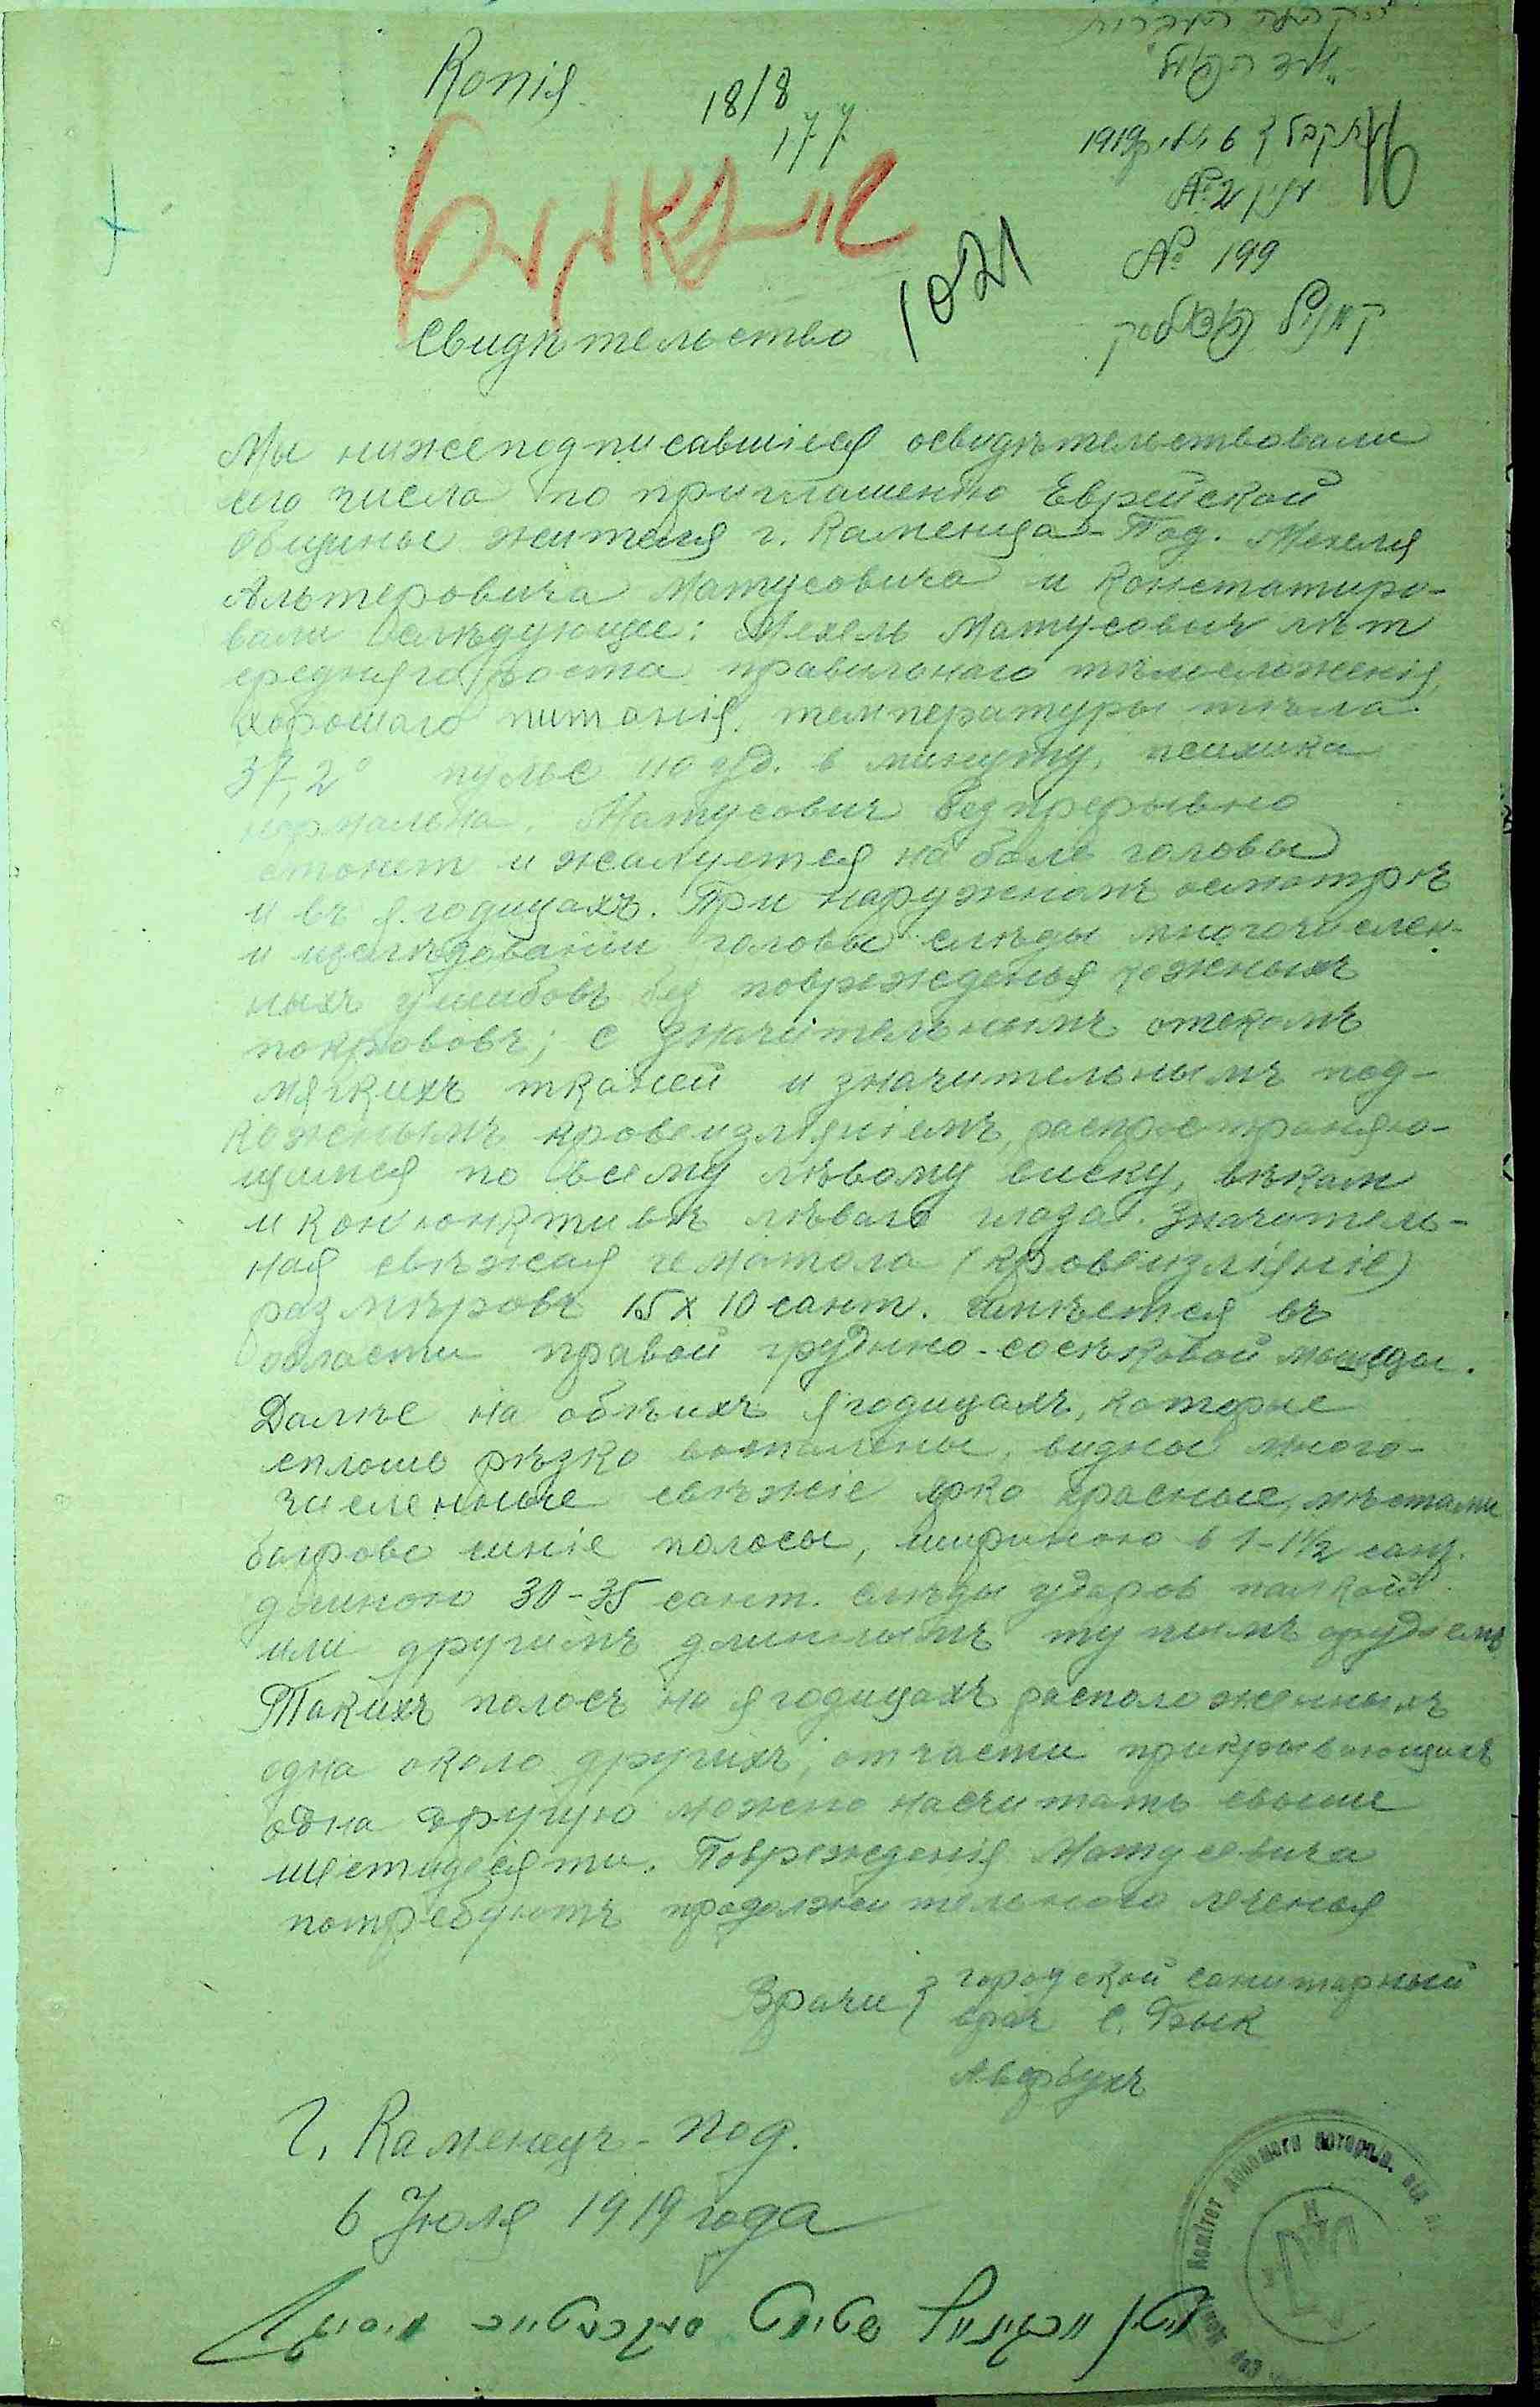 Копія
18/8
177
1919
№ 2
16
№ 199
1021
Свидѣтельство
Мы нижеподписавшіеся освидѣтельствовали
сего числа по приглашенію Еврейской
Общины жителя г. Каменца-Под. Мехеля
Альтеровича Матусовича и констатиро-
вали слѣдующее: Мехель Матусович лѣт
средняго роста правильнаго тѣлосложенія,
хорошаго питанія, температуры тѣла
37,2° пульс 110 уд. в минуту, психика
нормальна. Матусович безпрерывно
стонет и жалуется на боле головы
и въ ягодицахъ. При наружномъ осмотрѣ
и изслѣдованіи головы слѣды многочислен-
ныхъ ушибовъ без поврежденья кожныхъ
покрововъ; с значительнымъ отекомъ
мягкихъ тканей и значительнымъ под-
кожнымъ кровоизліяніемъ, распространяю-
щимся по всему лѣвому виску, вѣкам
и конъюнктивѣ лѣваго глаза. Значитель-
ная свѣжая гематома (кровоизліяніе)
размѣровъ 15 x 10 сант. имѣется въ
области правой грудинно-сосковой мышцы.
Далѣе на обѣихъ ягодицахъ, которые
сплошь рѣзко воспалены, видны много-
численные свѣжіе ярко красные, мѣстами
багрово синіе полосы, шириною в 1-1½ сант.
длиною 30-35 сант. слѣды ударов палкой
или другимъ длиннымъ тупымъ орудіемъ
Такихъ полосъ на ягодицахъ расположенныхъ
одна около другихъ, отчасти прикрывающихъ
одна другую можно насчитать свыше
шестидесяти. Поврежденія Матусевича
потребуютъ продолжительного леченья
Врачи { городской санитарный
врач С. Бык
Авербухъ
Г. Каменецъ-Под.
6 Июля 1919 года
Комітет допомоги потерпіл. від